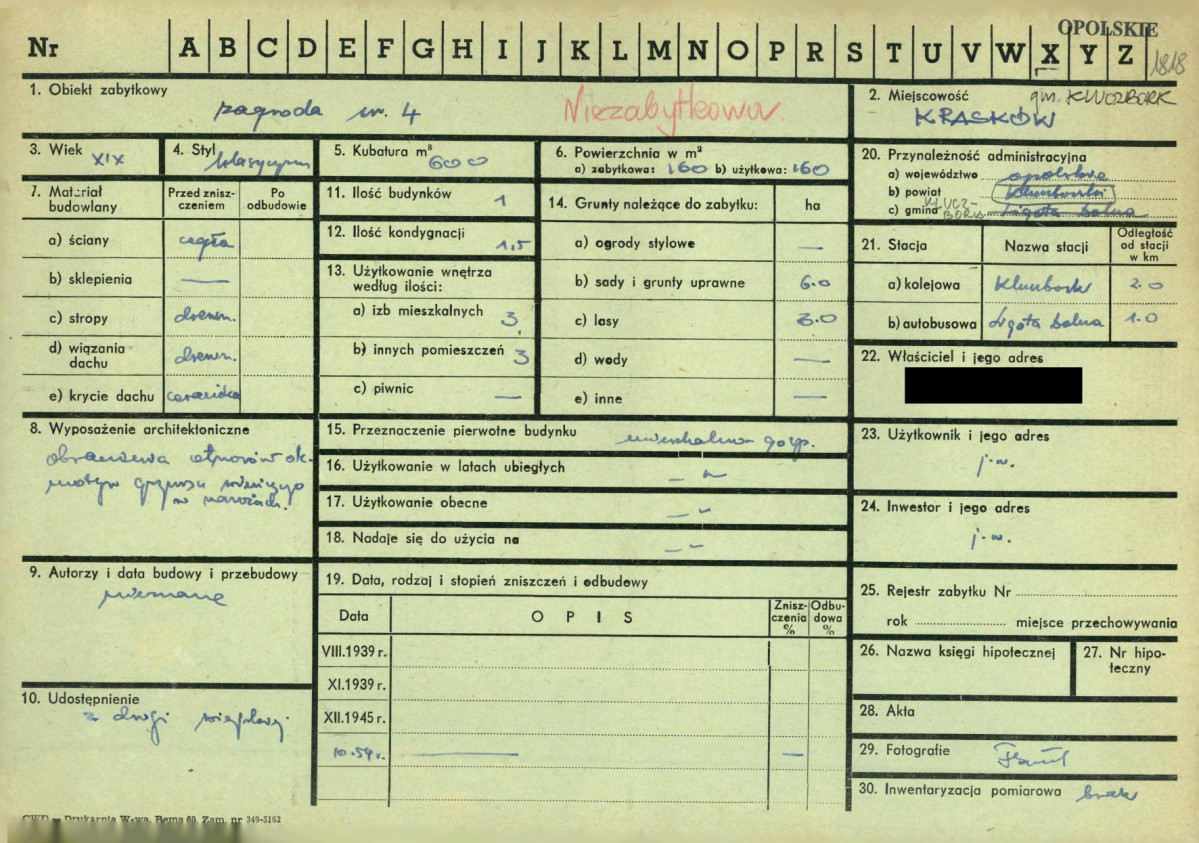 OPOLSKIE
Nr A B C D E F G H I J K L M N O P R S T U V W X Y Z 1818
1. Obiekt zabytkowy
zagroda nr. 4
Niezabytkowa
2. Miejscowość gm. KLUCZBORK
KRASKÓW
3. Wiek XIX
4. Styl klasycyzm
5. Kubatura m³ 600
6. Powierzchnia w m²
a) zabytkowa: 160 b) użytkowa: 160
20. Przynależność administracyjna
a) województwo opolskie
b) powiat Kluczborski
c) gmina KLUCZ-
BORK Ligota Dolna
7. Materiał budowlany
Przed znisz-
czeniem
Po
odbudowie
a) ściany cegła
b) sklepienia —
c) stropy drewn.
d) wiązania
dachu drewn.
e) krycie dachu ceramika
11. Ilość budynków 1
12. Ilość kondygnacji 1,5
13. Użytkowanie wnętrza
według ilości:
a) izb mieszkalnych 3
b) innych pomieszczeń 3
c) piwnic —
14. Grunty należące do zabytku: ha
a) ogrody stylowe —
b) sady i grunty uprawne 6.0
c) lasy 3.0
d) wody —
e) inne —
21. Stacja Nazwa stacji
Odległość
od stacji
w km
a) kolejowa Kluczbork 2.0
b) autobusowa Ligota Dolna 1.0
22. Właściciel i jego adres
8. Wyposażenie architektoniczne
obramienia otworów ok.
motyw gzymsu wieńczącego
w narożach.
15. Przeznaczenie pierwotne budynku mieszkalno gosp.
16. Użytkowanie w latach ubiegłych — " —
17. Użytkowanie obecne — " —
18. Nadaje się do użycia na — " —
23. Użytkownik i jego adres
j.w.
24. Inwestor i jego adres
j.w.
9. Autorzy i data budowy i przebudowy
nieznane
19. Data, rodzaj i stopień zniszczeń i odbudowy
Data O P I S
Znisz-
czenia
%
Odbu-
dowa
%
VIII.1939 r.
XI.1939 r.
XII.1945 r.
10.59 r. — —
25. Rejestr zabytku Nr
rok miejsce przechowywania
26. Nazwa księgi hipotecznej
27. Nr hipo-
teczny
10. Udostępnienie
z drogi wiejskiej
28. Akta
29. Fotografie
30. Inwentaryzacja pomiarowa brak
CWD — Drukarnia W-wa, Bema 60, Zam. nr 349-5162